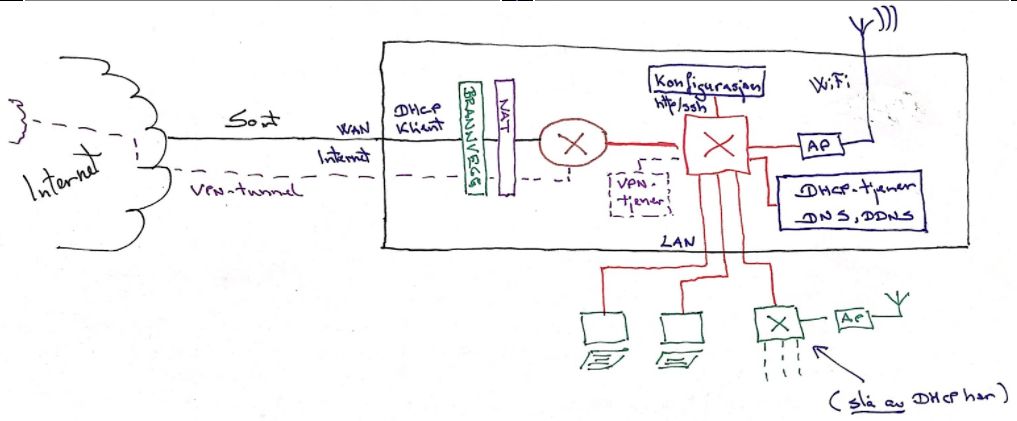 Internet
Sort
WAN
Internet
VPN-tunnel
DHCP
Klient
BRANNVEGG
NAT
Konfigurasjon
http/ssh
VPN-
tjener
WiFi
AP
DHCP-tjener
DNS, DDNS
LAN
AP
(slå av DHCP her)